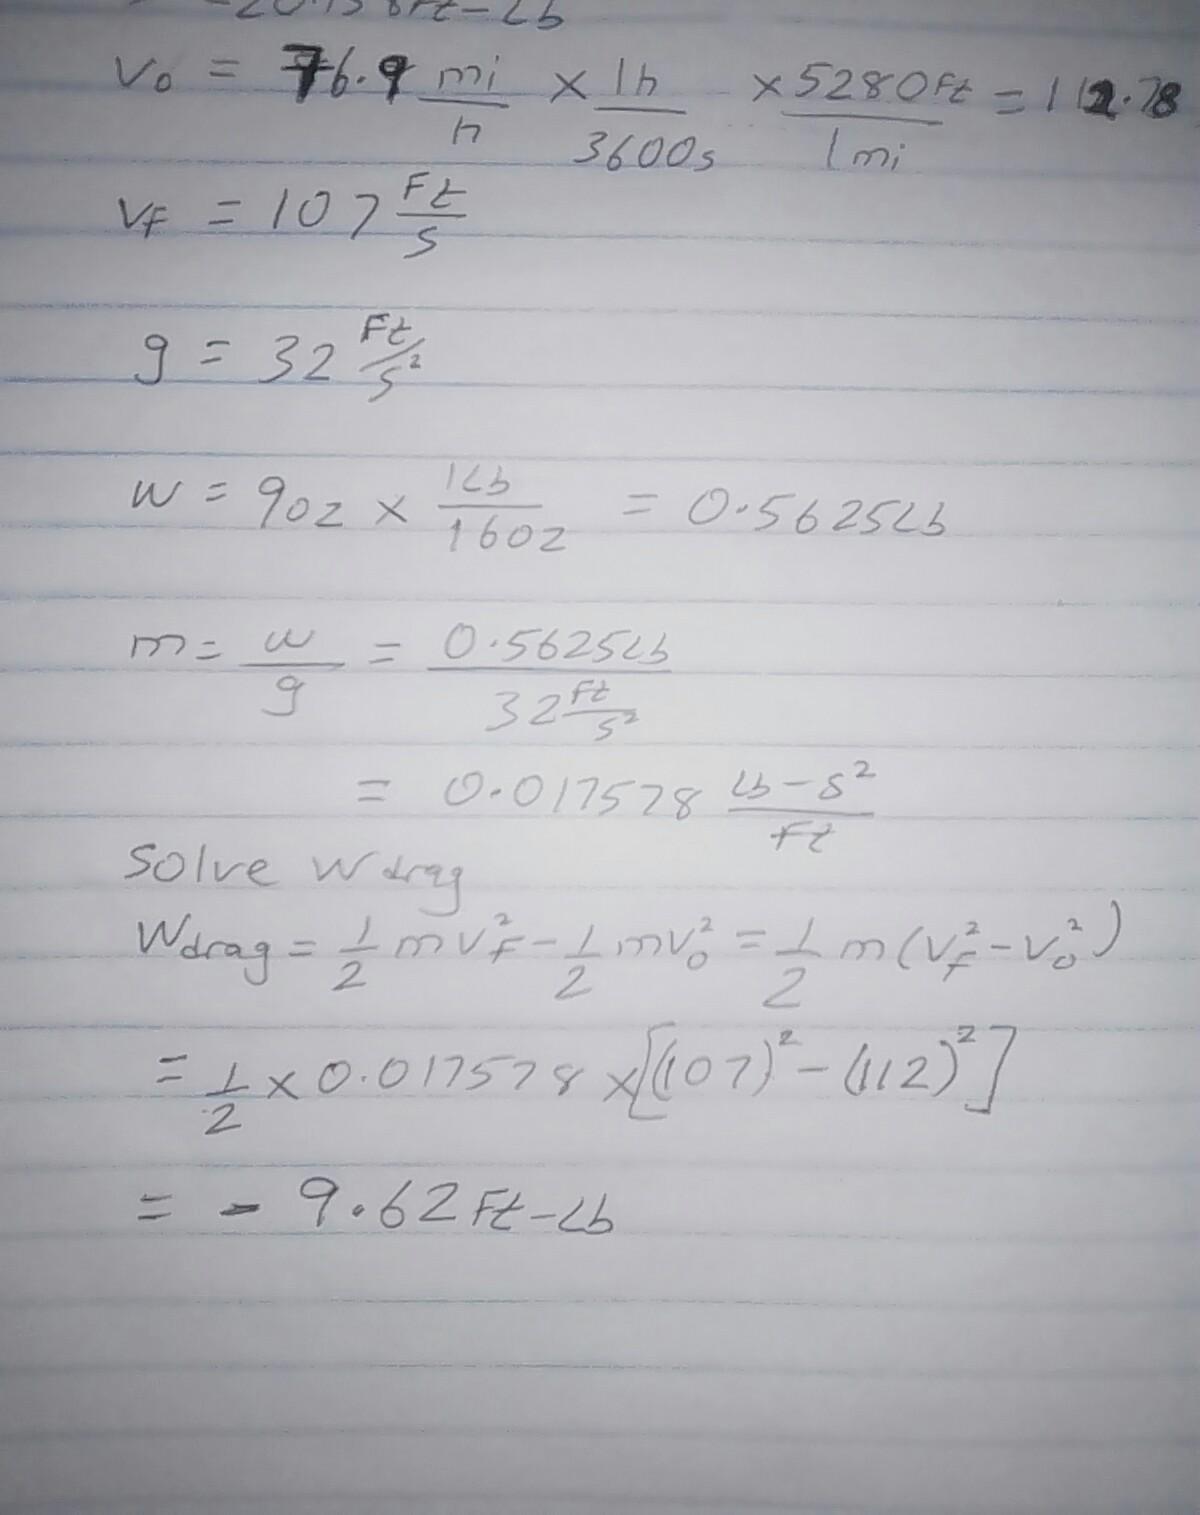 -20.158Ft-Lb
Vo = 76.9 mi/h × 1h/3600s × 5280Ft/1mi = 112.78
VF = 107 Ft/s
g = 32 Ft/s²
W = 9oz × 1Lb/16oz = 0.5625Lb
m = w/g = 0.5625Lb/32 Ft/s²
= 0.017578 Lb-s²/Ft
Solve Wdrag
Wdrag = 1/2 mVF² - 1/2 mVo² = 1/2 m(VF² - Vo²)
= 1/2 × 0.017578 × [(107)² - (112)²]
= - 9.62 Ft-Lb